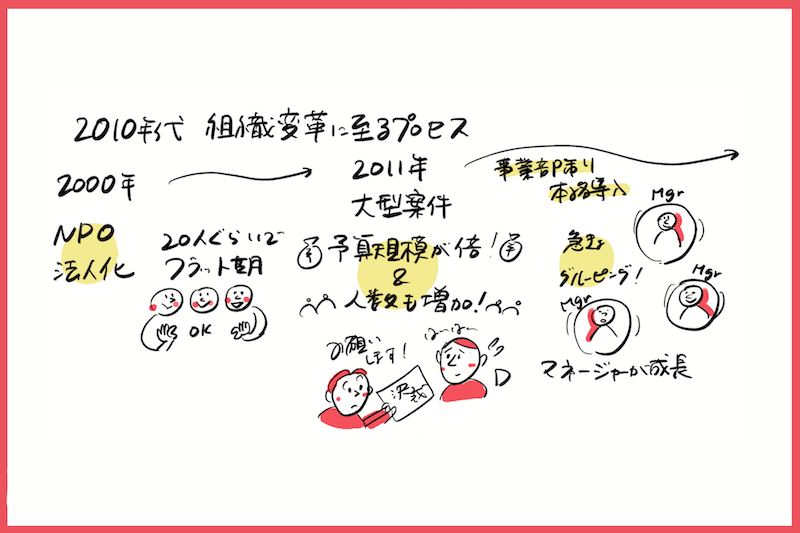 2010年代 組織変革に至るプロセス
2000年
NPO
法人化
20人ぐらいで
フラット期
OK
2011年
大型案件
予算規模が倍!
&
人数も増加!
お願い
します!
決裁
はーはー
D
事業部門制り
本格導入
急きょ
グルーピング!
Mgr
Mgr
Mgr
マネージャーが成長